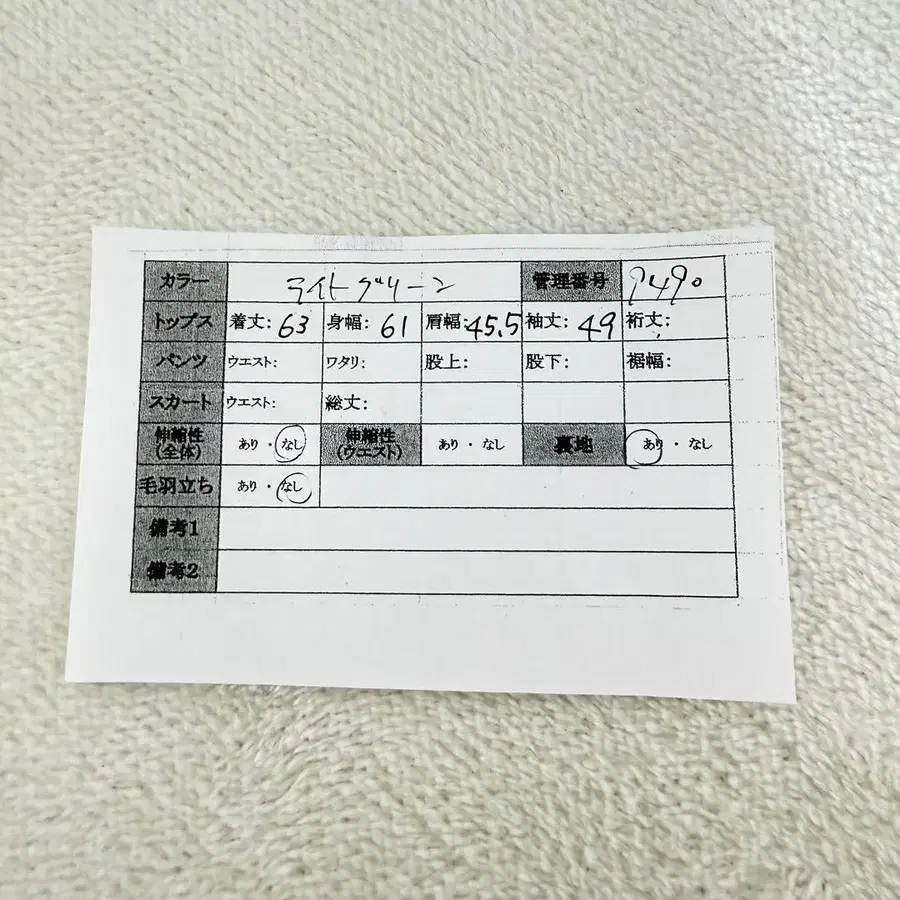 カラー ライトグリーン 管理番号
トップス 着丈: 63 身幅: 61 肩幅: 45.5 袖丈: 49 裄丈:
パンツ ウエスト: ワタリ: 股上: 股下: 裾幅:
スカート ウエスト: 総丈:
伸縮性 (全体) あり・なし 伸縮性 (ウエスト) あり・なし 裏地 あり・なし
毛羽立ち あり・なし
備考1
備考2